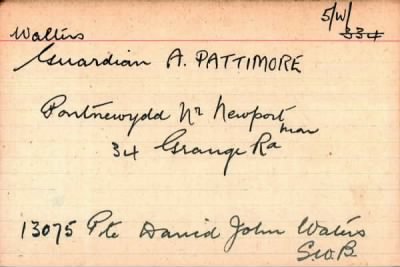 5/W/
334
Walters
Guardian A. PATTIMORE
Pontnewydd Nr Newport
Mon
34 Grange Rd
13075 Pte David John Waters
S.W.B.